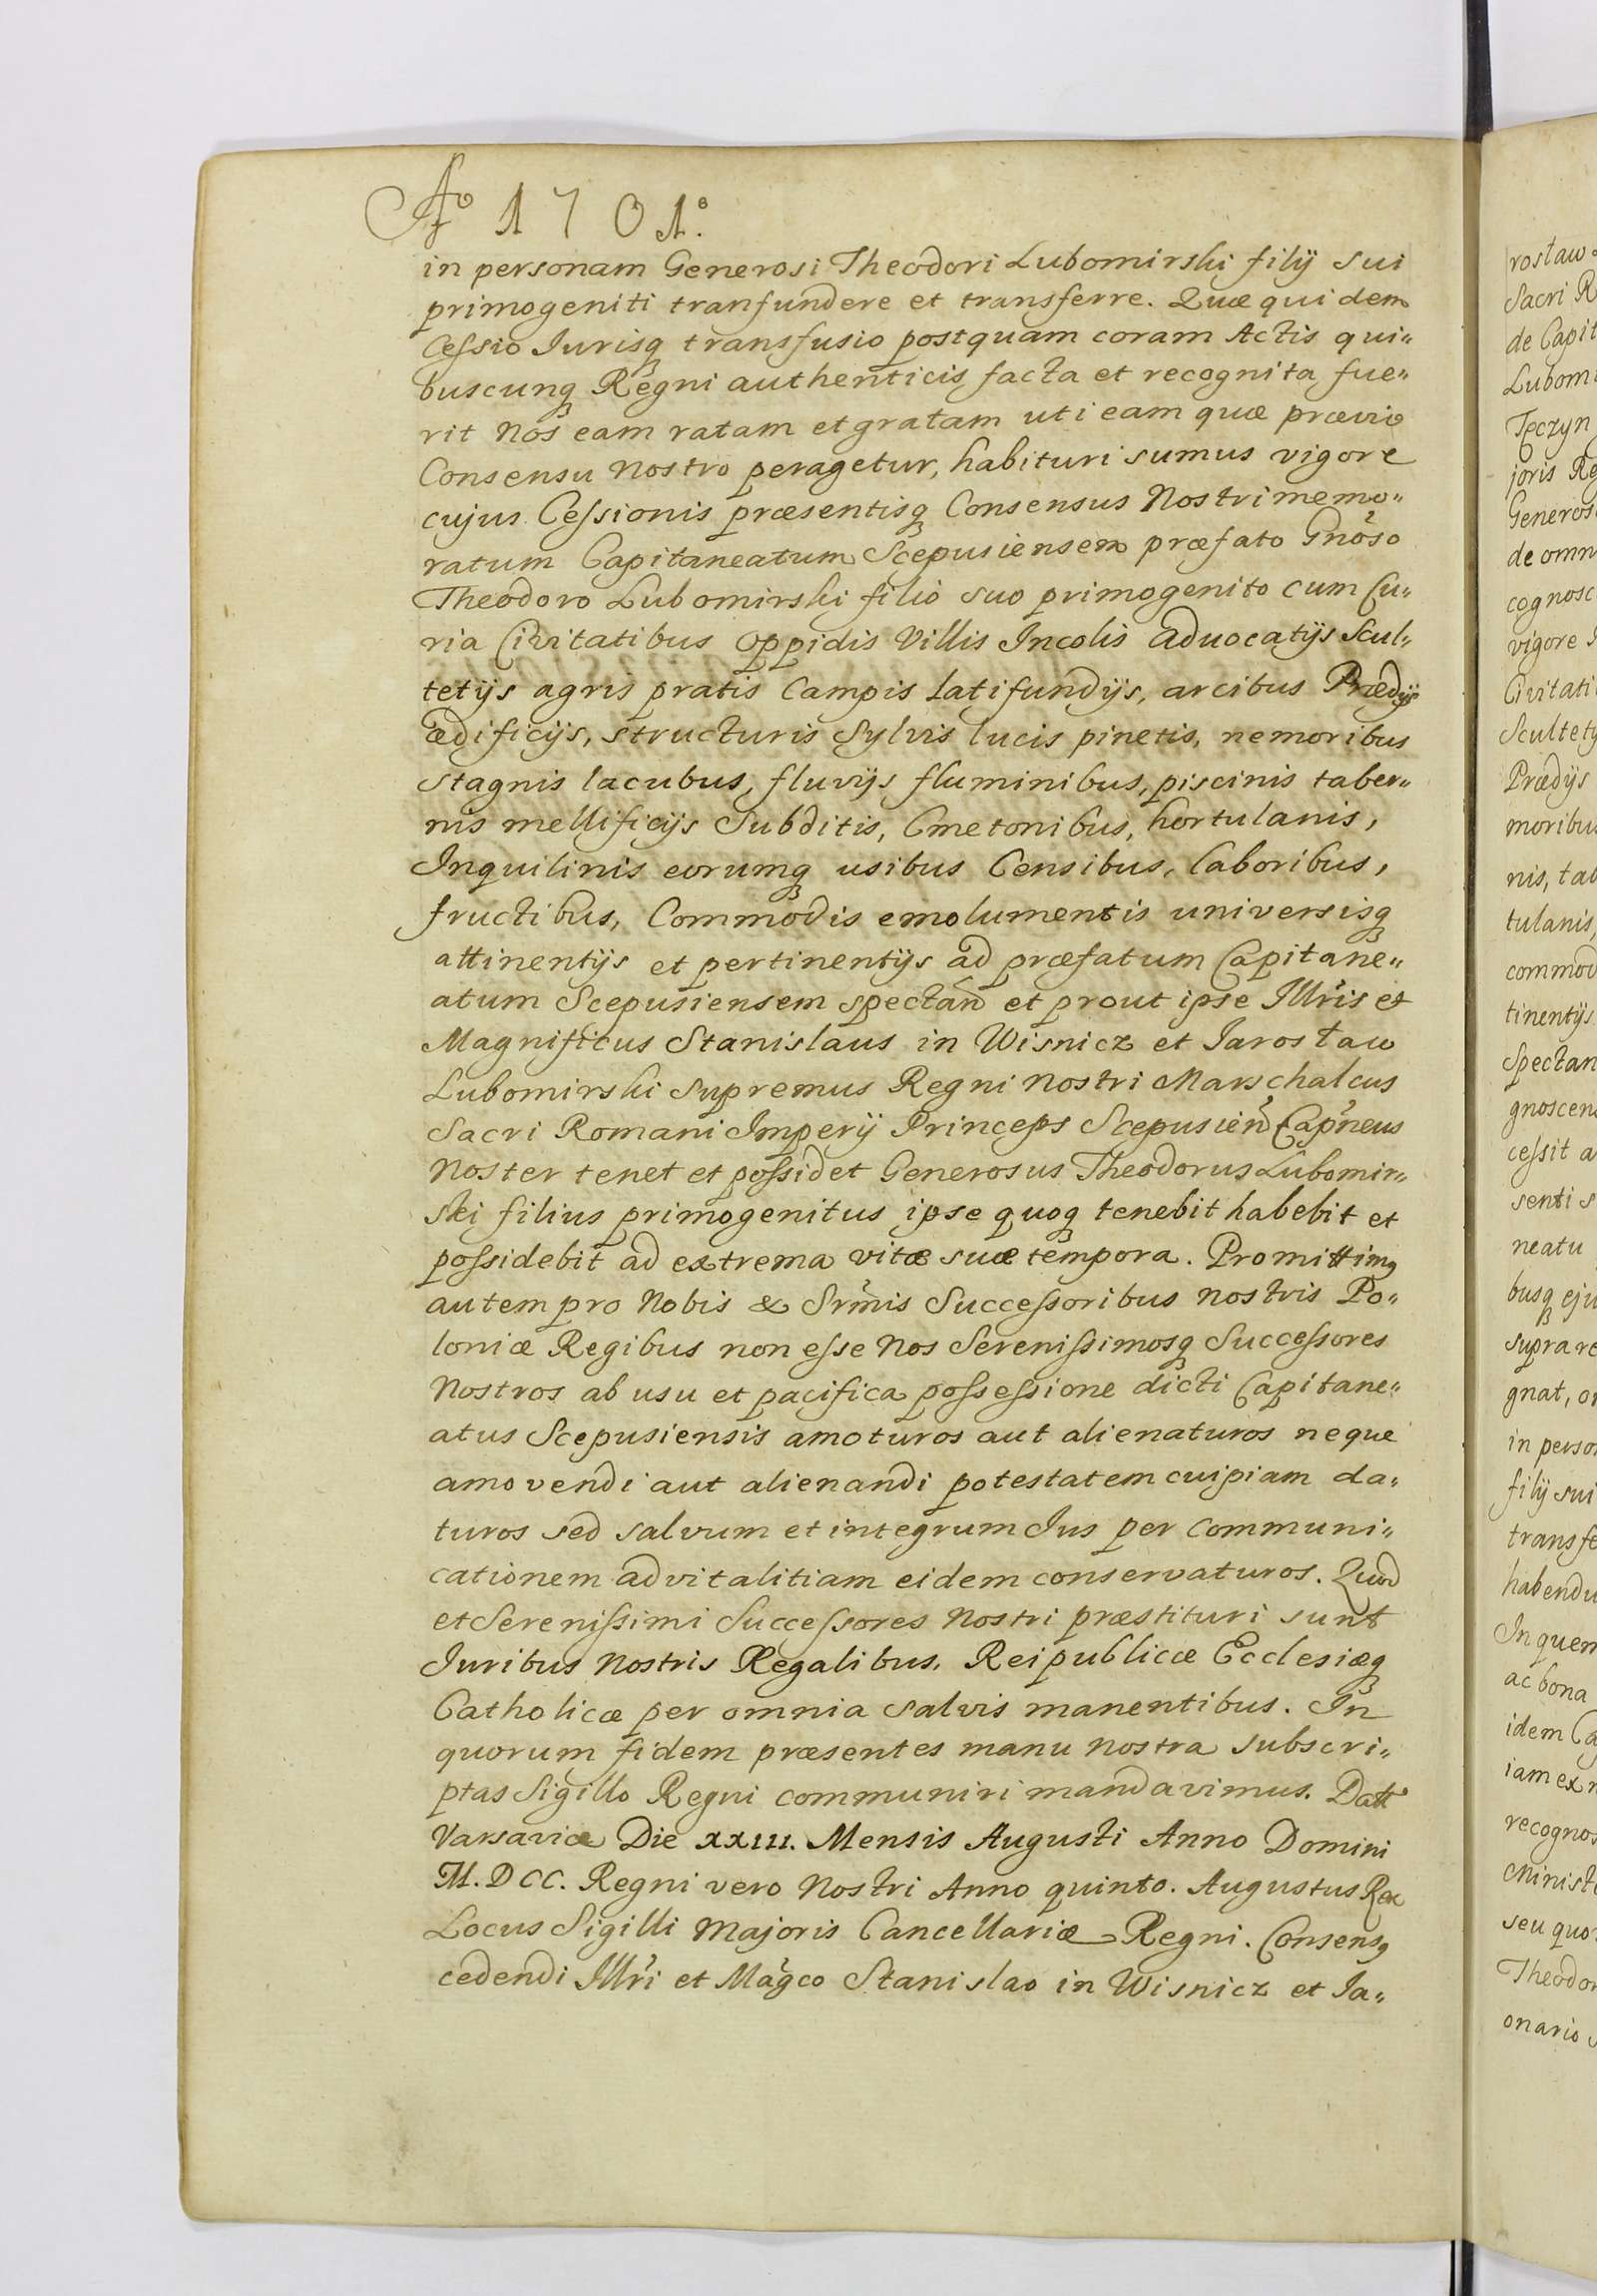 Aº 1701º.
in personam Generosi Theodori Lubomirski filij sui
primogeniti tranfundere et transferre. Quæ qui dem
Cessio Iurisq transfusio postquam coram Actis qui„
buscunq Regni authenticis facta et recognita fue„
rit Nos eam ratam et gratam uti eam quæ prævio
Consensu Nostro peragetur, habituri sumus vigore
cujus Cessionis præsentisq Consensus Nostri memo„
ratum Capitaneatum Scepusiensem præfato Gnoso
Theodoro Lubomirski filio suo primogenito cum Cu„
ria Civitatibus oppidis Villis Incolis aduocatijs Scul„
tetijs agris pratis Campis latifundijs, arcibus Prædijs
ædificijs, structuris Sylvis lucis pinetis, nemoribus
Stagnis lacubus, fluvijs fluminibus, piscinis taber„
nis mellificijs Subditis, Cmetonibus, hortulanis,
Inquilinis eorumq usibus Censibus, laboribus,
fructibus, Commodis emolumentis universisq
attinentijs et pertinentijs ad præfatum Capitane„
atum Scepusiensem spectan et prout ipse Illris et
Magnificus Stanislaus in Wisnicz et Jarosław
Lubomirski Supremus Regni Nostri Marschalcus
Sacri Romani Imperij Princeps Scepusien Capneus
Noster tenet et possidet Generosus Theodorus Lubomir„
ski filius primogenitus ipse quoq tenebit habebit et
possidebit ad extrema vitæ suæ tempora. Promittimq
autem pro Nobis & Srmis Successoribus nostris Po„
loniæ Regibus non esse Nos Serenissimosq Successores
Nostros ab usu et pacifica possessione dicti Capitane„
atus Scepusiensis amoturos aut alienaturos neque
amovendi aut alienandi potestatem cuipiam da„
turos sed salvum et integrum Jus per communi„
cationem advitalitiam eidem conservaturos. Quod
et Serenissimi Successores Nostri præstituri sunt
Juribus Nostris Regalibus, Reipublicæ Ecclesiæq
Catholicæ per omnia salvis manentibus. In
quorum fidem præsentes manu nostra subscri„
ptas Sigillo Regni communiri mandavimus. Datt
Varsaviæ Die XXIII. Mensis Augusti Anno Domini
M.DCC. Regni vero Nostri Anno quinto. Augustus Rex
Locus Sigilli Majoris Cancellariæ Regni. Consensq
cedendi Illri et Magco Stanislao in Wisnicz et Ja„
rosław
Sacri R
de Capit
Lubomi
Tęczyn
joris Reg
Generos
de omn
cognosc
vigore
Civitati
Scultety
Prædijs
moribus
nis, tab
tulanis,
commod
tinentijs
Spectan
gnoscen
cessit a
senti s
neatu
busq eju
supra re
gnat, o
in person
filij sui
transfe
habendu
In quem
ac bona
idem Ca
iam ex
recognos
Minist
seu quo
Theodor
onario